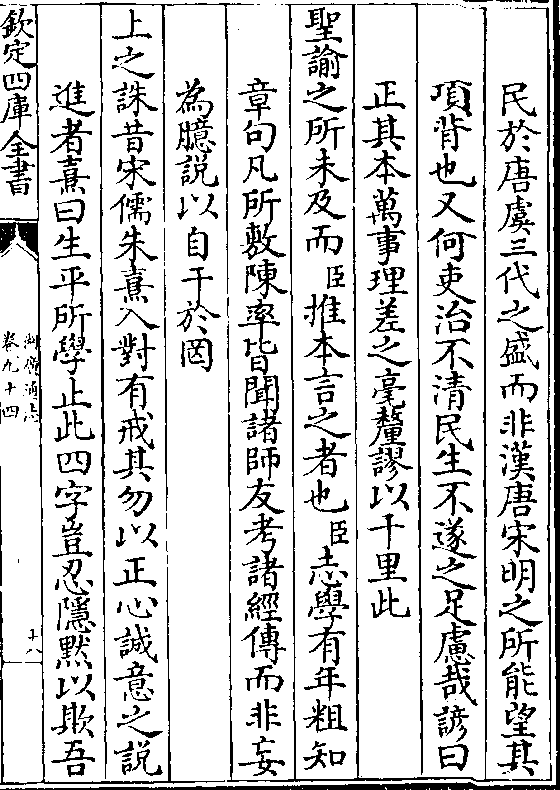 民於唐虞三代之盛而非漢唐宋明之所能望其
項背也又何吏治不清民生不遂之足慮哉諺曰
正其本萬事理差之毫釐謬以千里此
聖諭之所未及而臣推本言之者也臣志學有年粗知
章句凡所敷陳率皆聞諸師友考諸經傳而非妄
為臆説以自干於罔
上之誅昔宋儒朱熹入對有戒其勿以正心誠意之説
進者熹曰生平所學止此四字豈忍隱黙以欺吾
欽定四庫全書
湖廣通志
卷九十四
十八